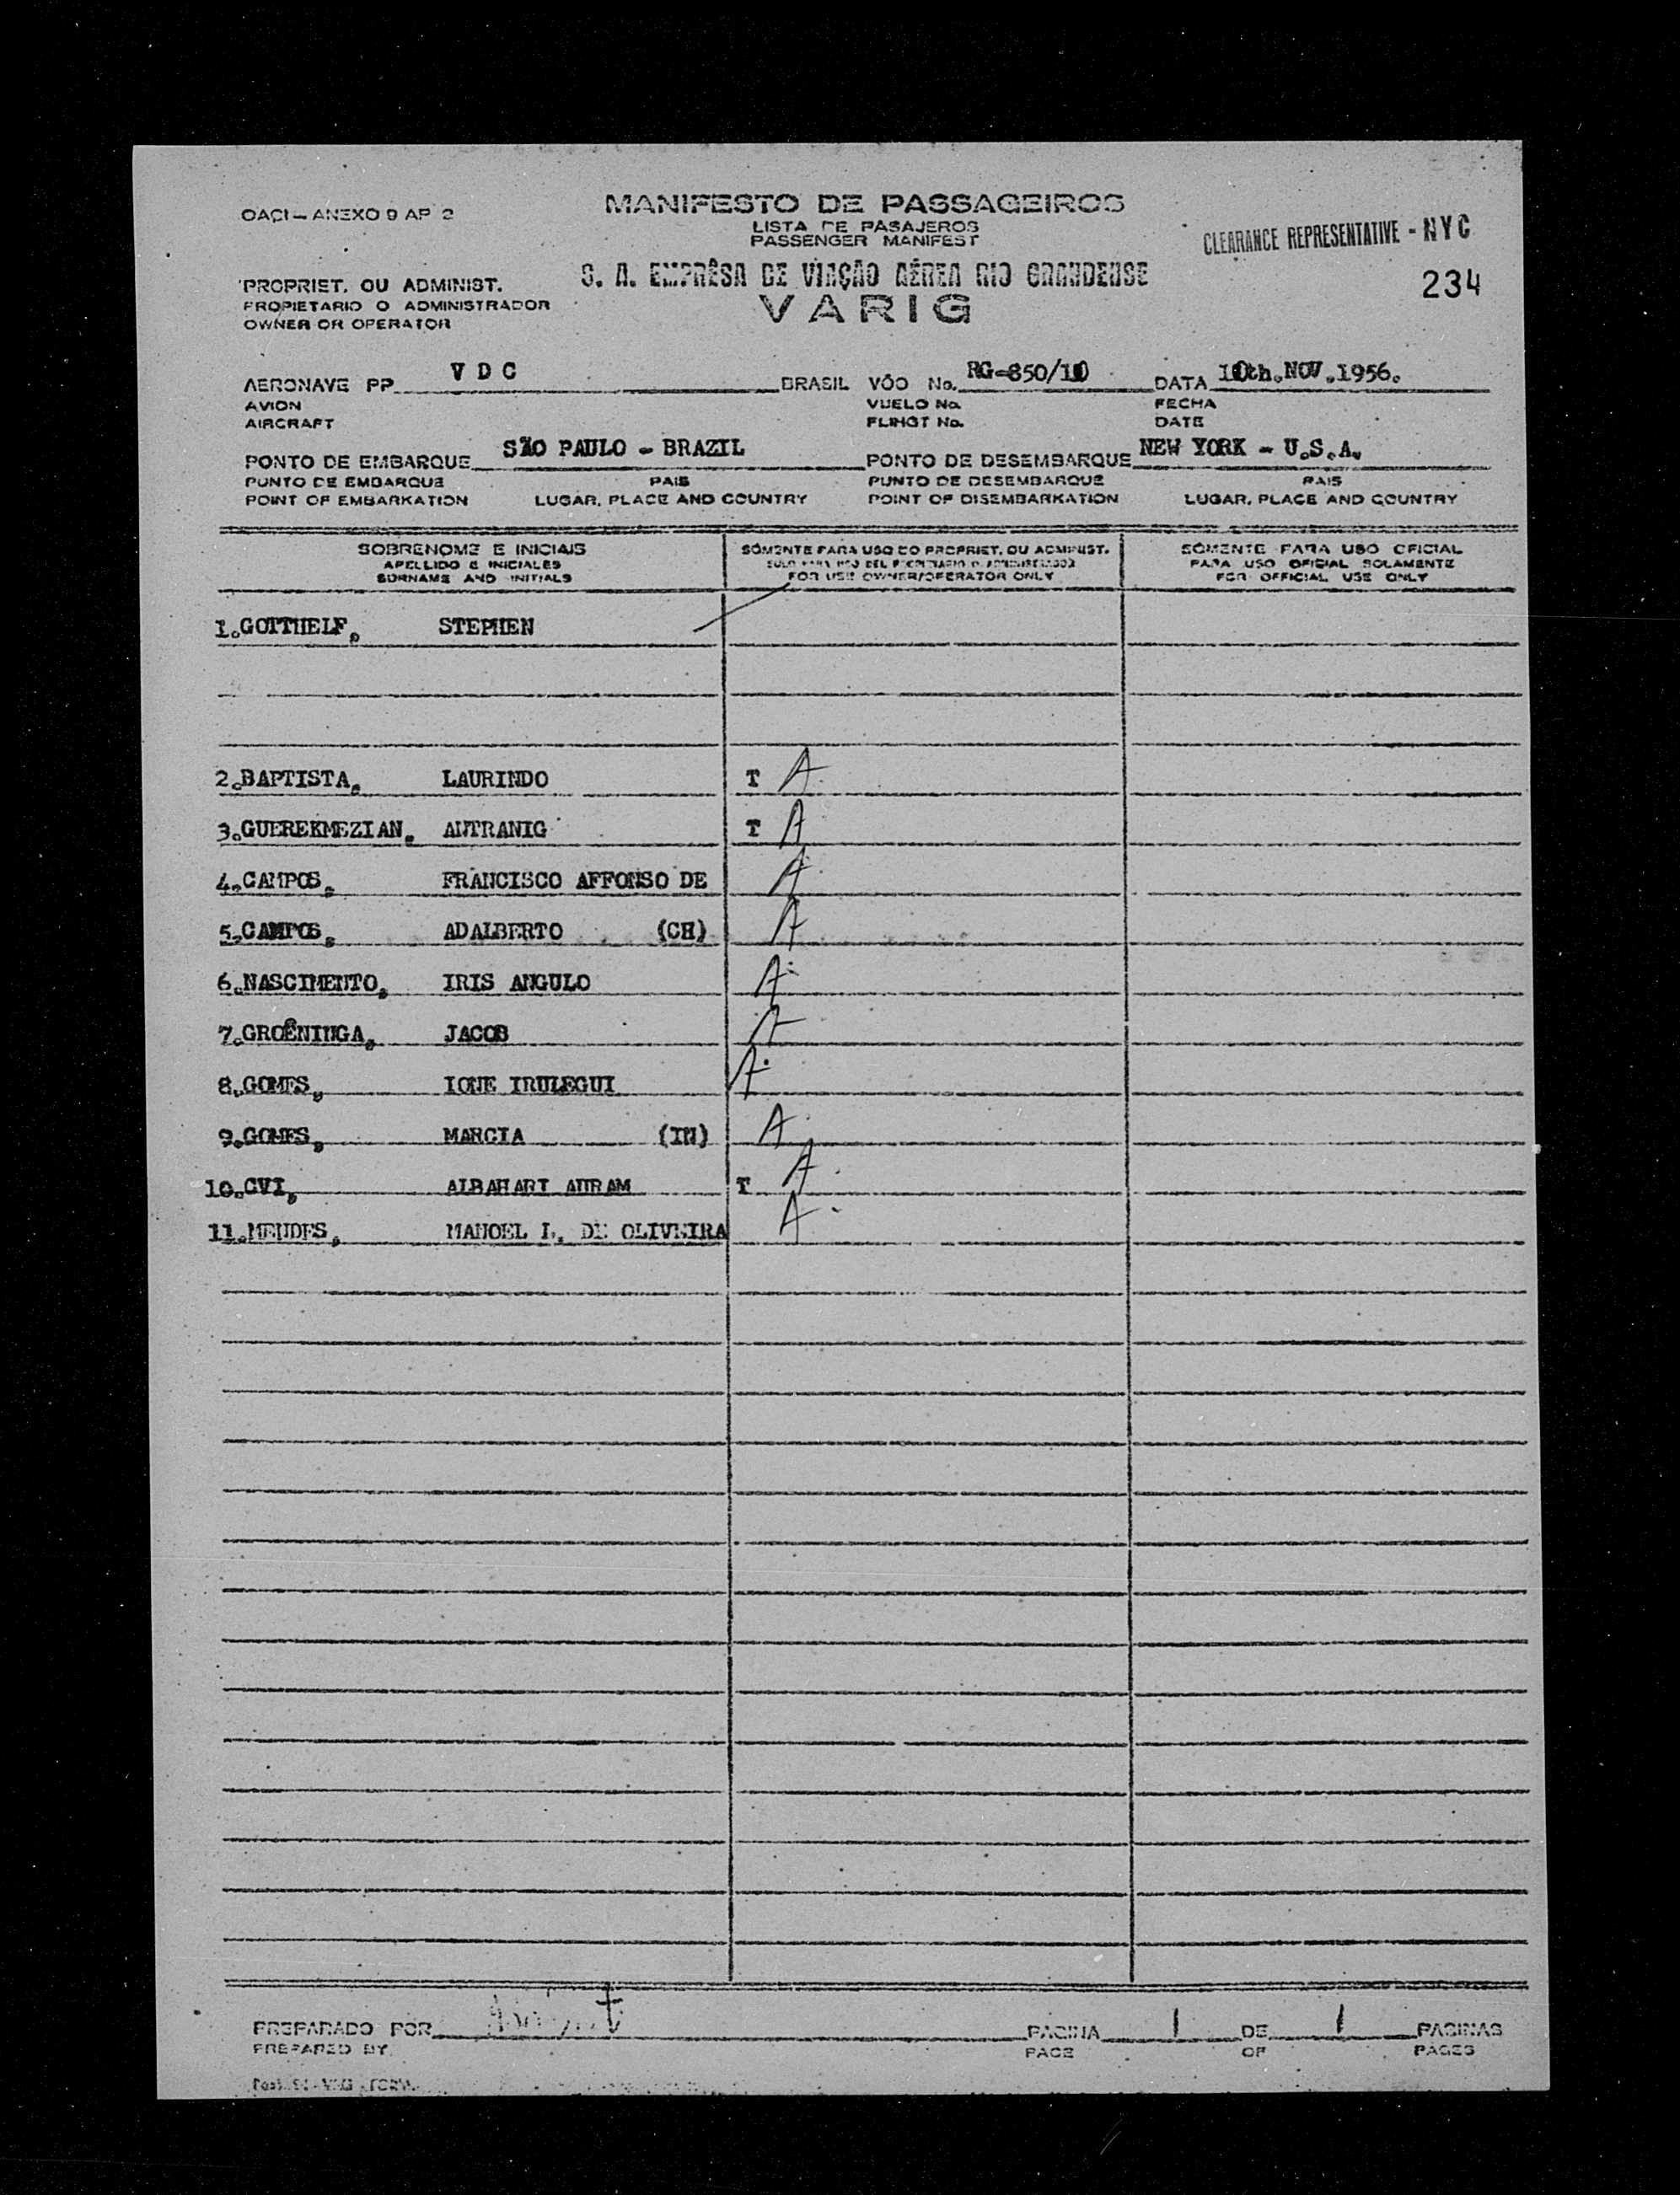 OACI — ANEXO 9 AP 2
MANIFESTO DE PASSAGEIROS
LISTA DE PASAJEROS
PASSENGER MANIFEST
CLEARANCE REPRESENTATIVE - NYC
234
S. A. EMPRÊSA DE VIAÇÃO AÉREA RIO GRANDENSE
VARIG
PROPRIET. OU ADMINIST.
PROPIETARIO O ADMINISTRADOR
OWNER OR OPERATOR
AERONAVE PP V D C BRASIL VÔO No. RG-850/10 DATA 10th.NOV.1956.
AVION VUELO No. FECHA
AIRCRAFT FLIHGT No. DATE
PONTO DE EMBARQUE SÃO PAULO - BRAZIL PONTO DE DESEMBARQUE NEW YORK - U.S.A.
PUNTO DE EMBARQUE PAIS PUNTO DE DESEMBARQUE PAIS
POINT OF EMBARKATION LUGAR, PLACE AND COUNTRY POINT OF DISEMBARKATION LUGAR, PLACE AND COUNTRY
SOBRENOME E INICIAIS SÓMENTE PARA USO DO PROPRIET. OU ADMINIST. SÓMENTE PARA USO OFICIAL
APELLIDO E INICIALES SOLO PARA USO DEL PROPIETARIO O ADMINISTRADOR PARA USO OFICIAL SOLAMENTE
SURNAME AND INITIALS FOR USE OWNER/OPERATOR ONLY FOR OFFICIAL USE ONLY
1.GOTTHELF, STEPHEN
2.BAPTISTA, LAURINDO T A
3.GUEREKMEZIAN, ANTRANIG T A
4.CAMPOS, FRANCISCO AFFONSO DE A
5.CAMPOS, ADALBERTO (CH) A
6.NASCIMENTO, IRIS ANGULO A
7.GROÊNINGA, JACOB A
8.GOMES, IONE IRULEGUI A
9.GOMES, MARCIA (IN) A
10.CVI, ALBAHARI AVRAM T A
11.MENDES, MANOEL L. DE OLIVEIRA A
PREPARADO POR PAGINA 1 DE 1 PAGINAS
PREPARED BY PAGE OF PAGES